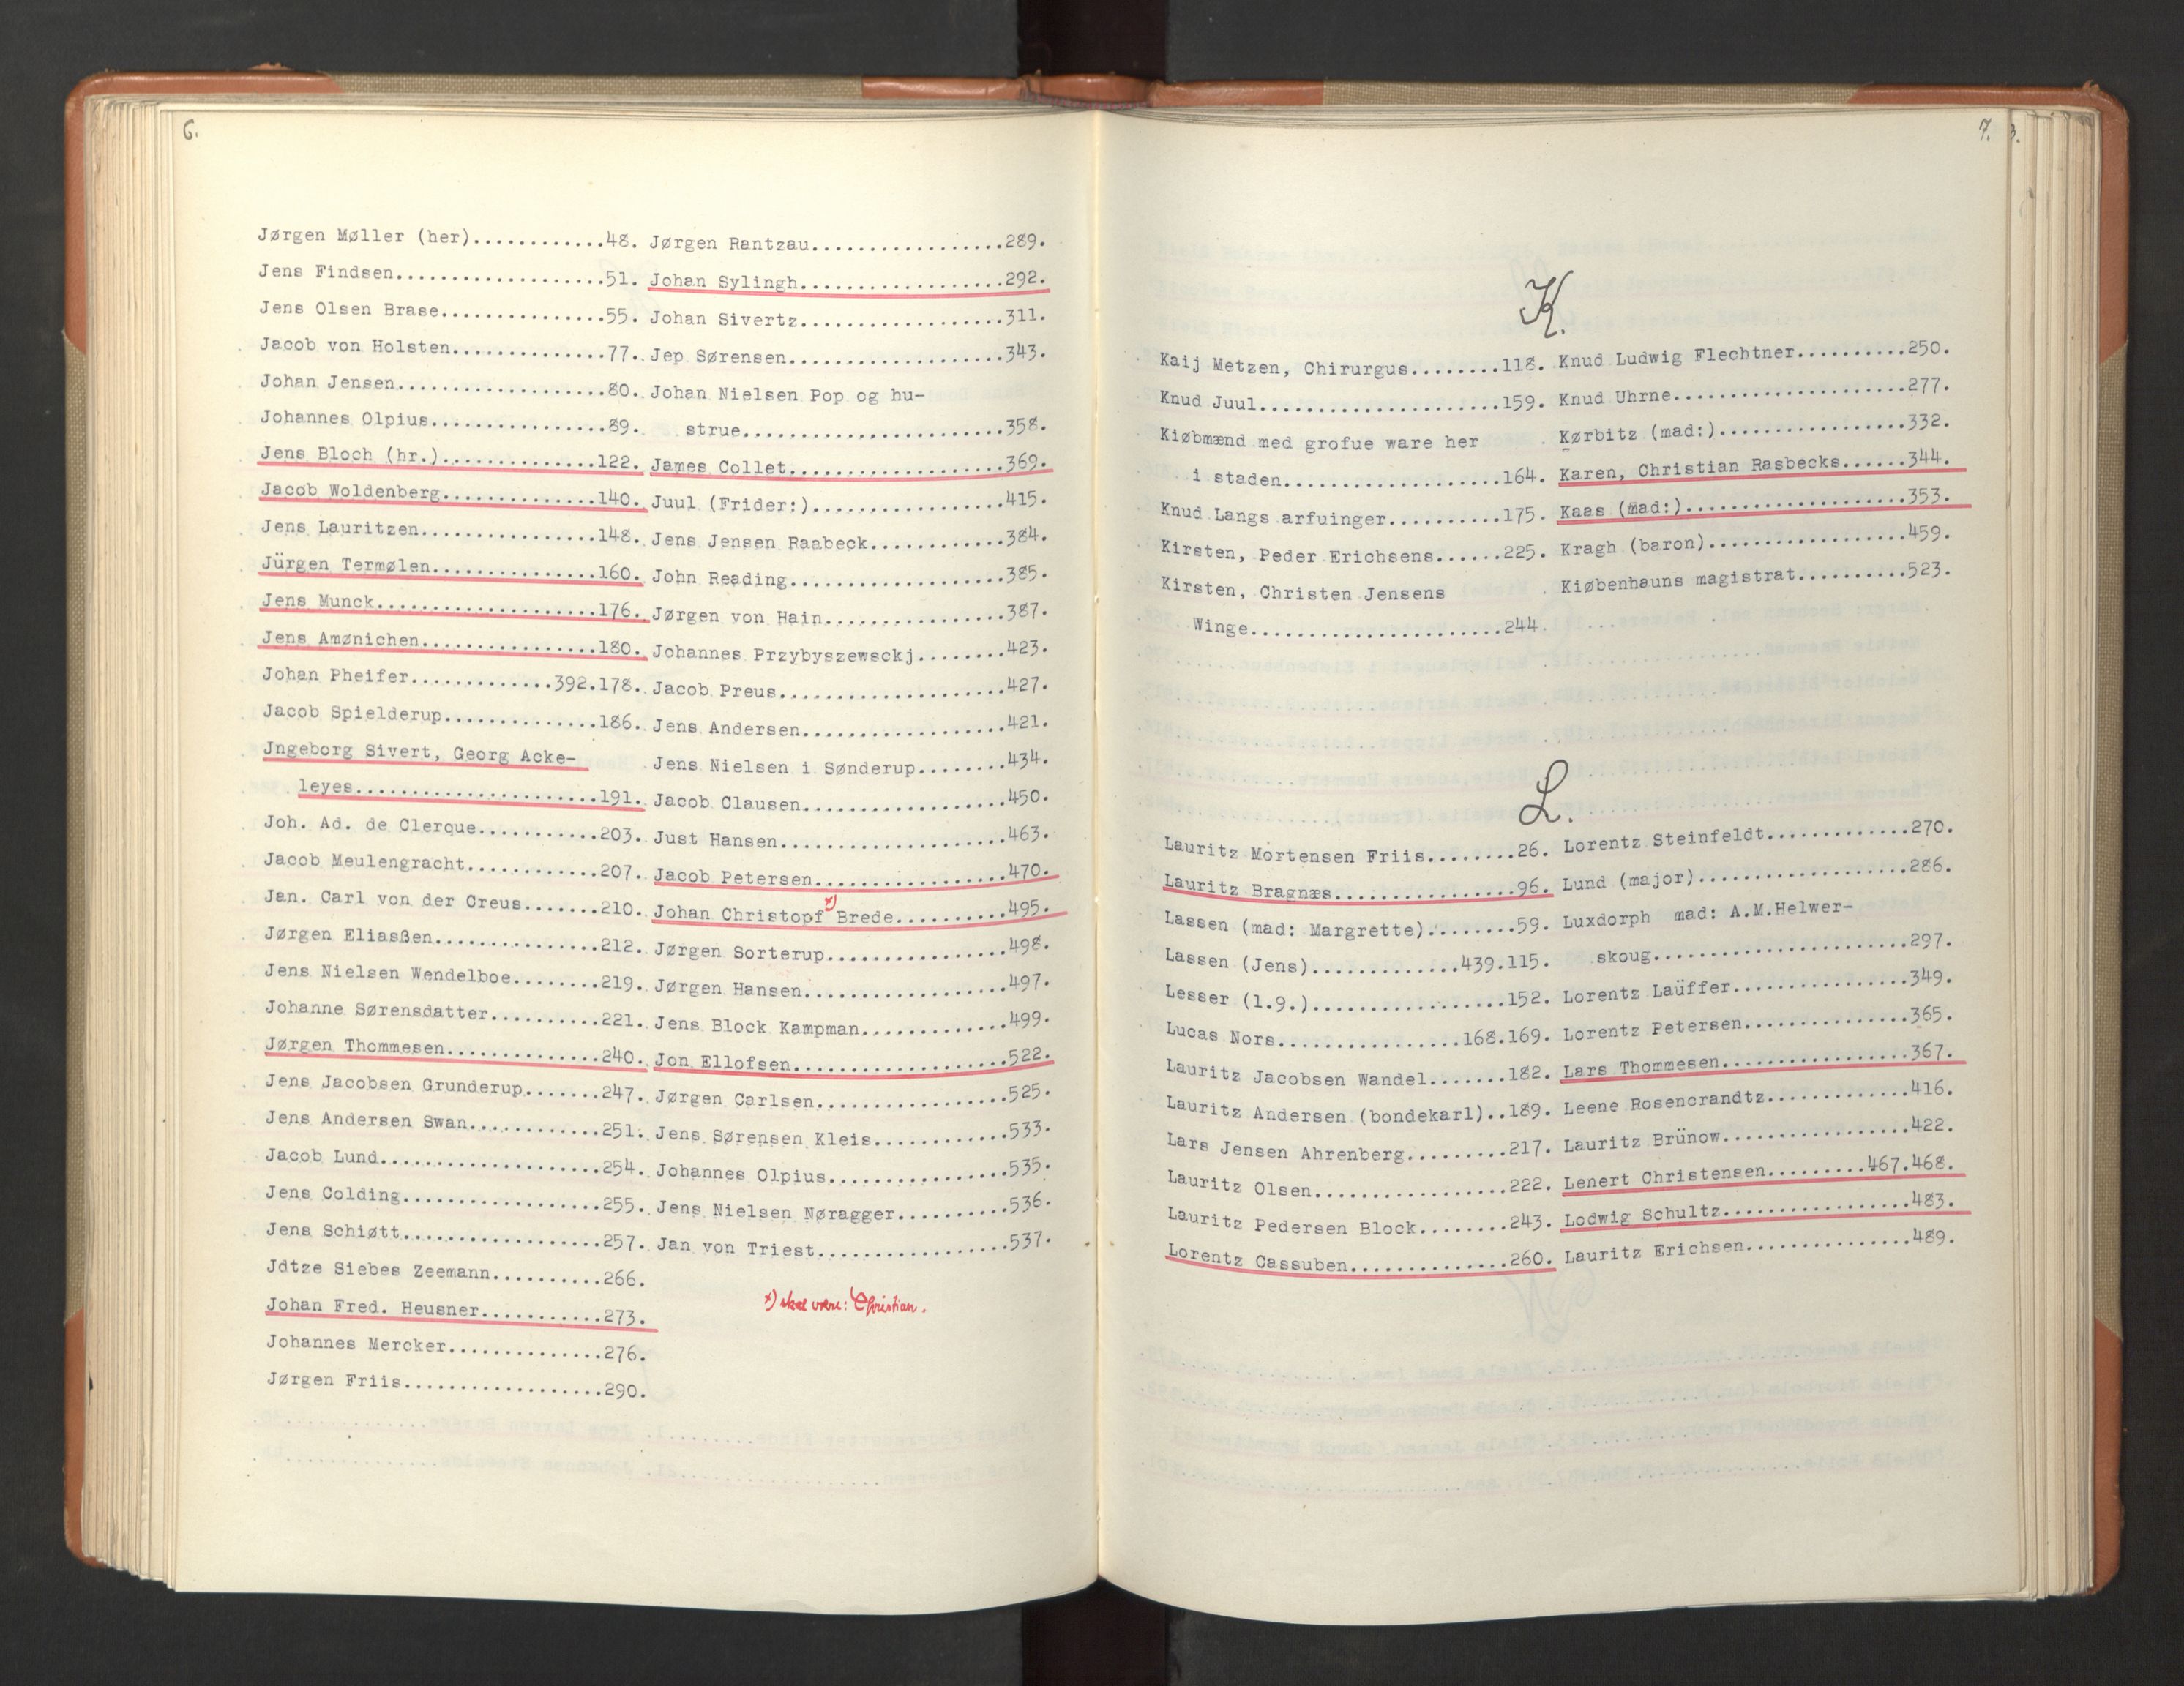 6.
Jørgen Møller (her)............48.
Jens Findsen...................51.
Jens Olsen Brase...............55.
Jacob von Holsten..............77.
Johan Jensen...................80.
Johannes Olpius................89.
Jens Bloch (hr.)..............122.
Jacob Woldenberg..............140.
Jens Lauritzen................148.
Jürgen Termølen...............160.
Jens Munck....................176.
Jens Amønichen................180.
Johan Pheifer.............392.178.
Jacob Spielderup..............186.
Jngeborg Sivert, Georg Acke-
leyes......................191.
Joh. Ad. de Clerque...........203.
Jacob Meulengracht............207.
Jan. Carl von der Creus.......210.
Jørgen Eliasßen...............212.
Jens Nielsen Wendelboe........219.
Johanne Sørensdatter..........221.
Jørgen Thommesen..............240.
Jens Jacobsen Grunderup.......247.
Jens Andersen Swan............251.
Jacob Lund....................254.
Jens Colding..................255.
Jens Schiøtt..................257.
Jdtze Siebes Zeemann..........266.
Johan Fred. Heusner...........273.
Johannes Mercker..............276.
Jørgen Friis..................290.
Jørgen Rantzau.................289.
Johan Sylingh..................292.
Johan Sivertz..................311.
Jep Sørensen...................343.
Johan Nielsen Pop og hu-
strue.......................358.
James Collet...................369.
Juul (Frider:).................415.
Jens Jensen Raabeck............384.
John Reading...................385.
Jørgen von Hain................387.
Johannes Przybyszewsckj........423.
Jacob Preus....................427.
Jens Andersen..................421.
Jens Nielsen i Sønderup........434.
Jacob Clausen..................450.
Just Hansen....................463.
Jacob Petersen.................470.
Johan Christopf x) Brede..........495.
Jørgen Sorterup................498.
Jørgen Hansen..................497.
Jens Block Kampman.............499.
Jon Ellofsen...................522.
Jørgen Carlsen.................525.
Jens Sørensen Kleis............533.
Johannes Olpius................535.
Jens Nielsen Nøragger..........536.
Jan von Triest.................537.
x) skal være: Christian.
7.
3.
K.
Kaij Metzen, Chirurgus........118.
Knud Juul.....................159.
Kiøbmænd med grofue ware her
i staden...................164.
Knud Langs arfuinger..........175.
Kirsten, Peder Erichsens......225.
Kirsten, Christen Jensens
Winge......................244.
Knud Ludwig Flechtner..........250.
Knud Uhrne.....................277.
Kørbitz (mad:).................332.
Karen, Christian Rasbecks......344.
Kaas (mad:)....................353.
Kragh (baron)..................459.
Kiøbenhauns magistrat..........523.
L.
Lauritz Mortensen Friis........26.
Lauritz Bragnæs................96.
Lassen (mad: Margrette)........59.
Lassen (Jens).............439.115.
Lesser (l.9.).................152.
Lucas Nors................168.169.
Lauritz Jacobsen Wandel.......182.
Lauritz Andersen (bondekarl)..189.
Lars Jensen Ahrenberg.........217.
Lauritz Olsen.................222.
Lauritz Pedersen Block........243.
Lorentz Cassuben..............260.
Lorentz Steinfeldt.............270.
Lund (major)...................286.
Luxdorph mad: A.M.Helwer-
skoug.......................297.
Lorentz Laüffer................349.
Lorentz Petersen...............365.
Lars Thommesen.................367.
Leene Rosencrandtz.............416.
Lauritz Brünow.................422.
Lenert Christensen.........467.468.
Lodwig Schultz.................483.
Lauritz Erichsen...............489.